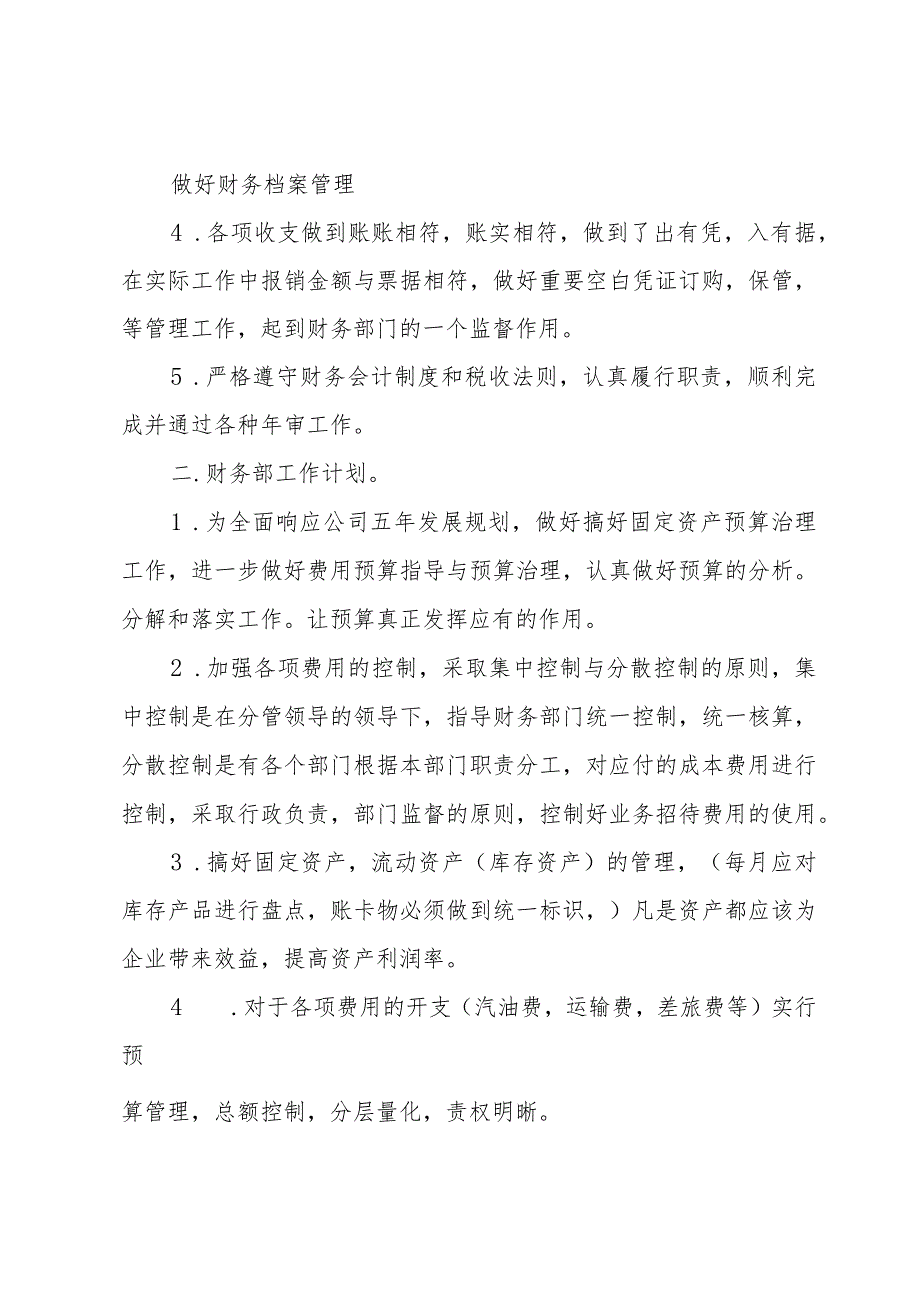 做好财务档案管理
4 .各项收支做到账账相符，账实相符，做到了出有凭，入有据，
在实际工作中报销金额与票据相符，做好重要空白凭证订购，保管，
等管理工作，起到财务部门的一个监督作用。
5 .严格遵守财务会计制度和税收法则，认真履行职责，顺利完
成并通过各种年审工作。
二.财务部工作计划。
1 .为全面响应公司五年发展规划，做好搞好固定资产预算治理
工作，进一步做好费用预算指导与预算治理，认真做好预算的分析。
分解和落实工作。让预算真正发挥应有的作用。
2 .加强各项费用的控制，采取集中控制与分散控制的原则，集
中控制是在分管领导的领导下，指导财务部门统一控制，统一核算，
分散控制是有各个部门根据本部门职责分工，对应付的成本费用进行
控制，采取行政负责，部门监督的原则，控制好业务招待费用的使用。
3 .搞好固定资产，流动资产（库存资产）的管理，（每月应对
库存产品进行盘点，账卡物必须做到统一标识，）凡是资产都应该为
企业带来效益，提高资产利润率。
4 .对于各项费用的开支（汽油费，运输费，差旅费等）实行
预
算管理，总额控制，分层量化，责权明晰。